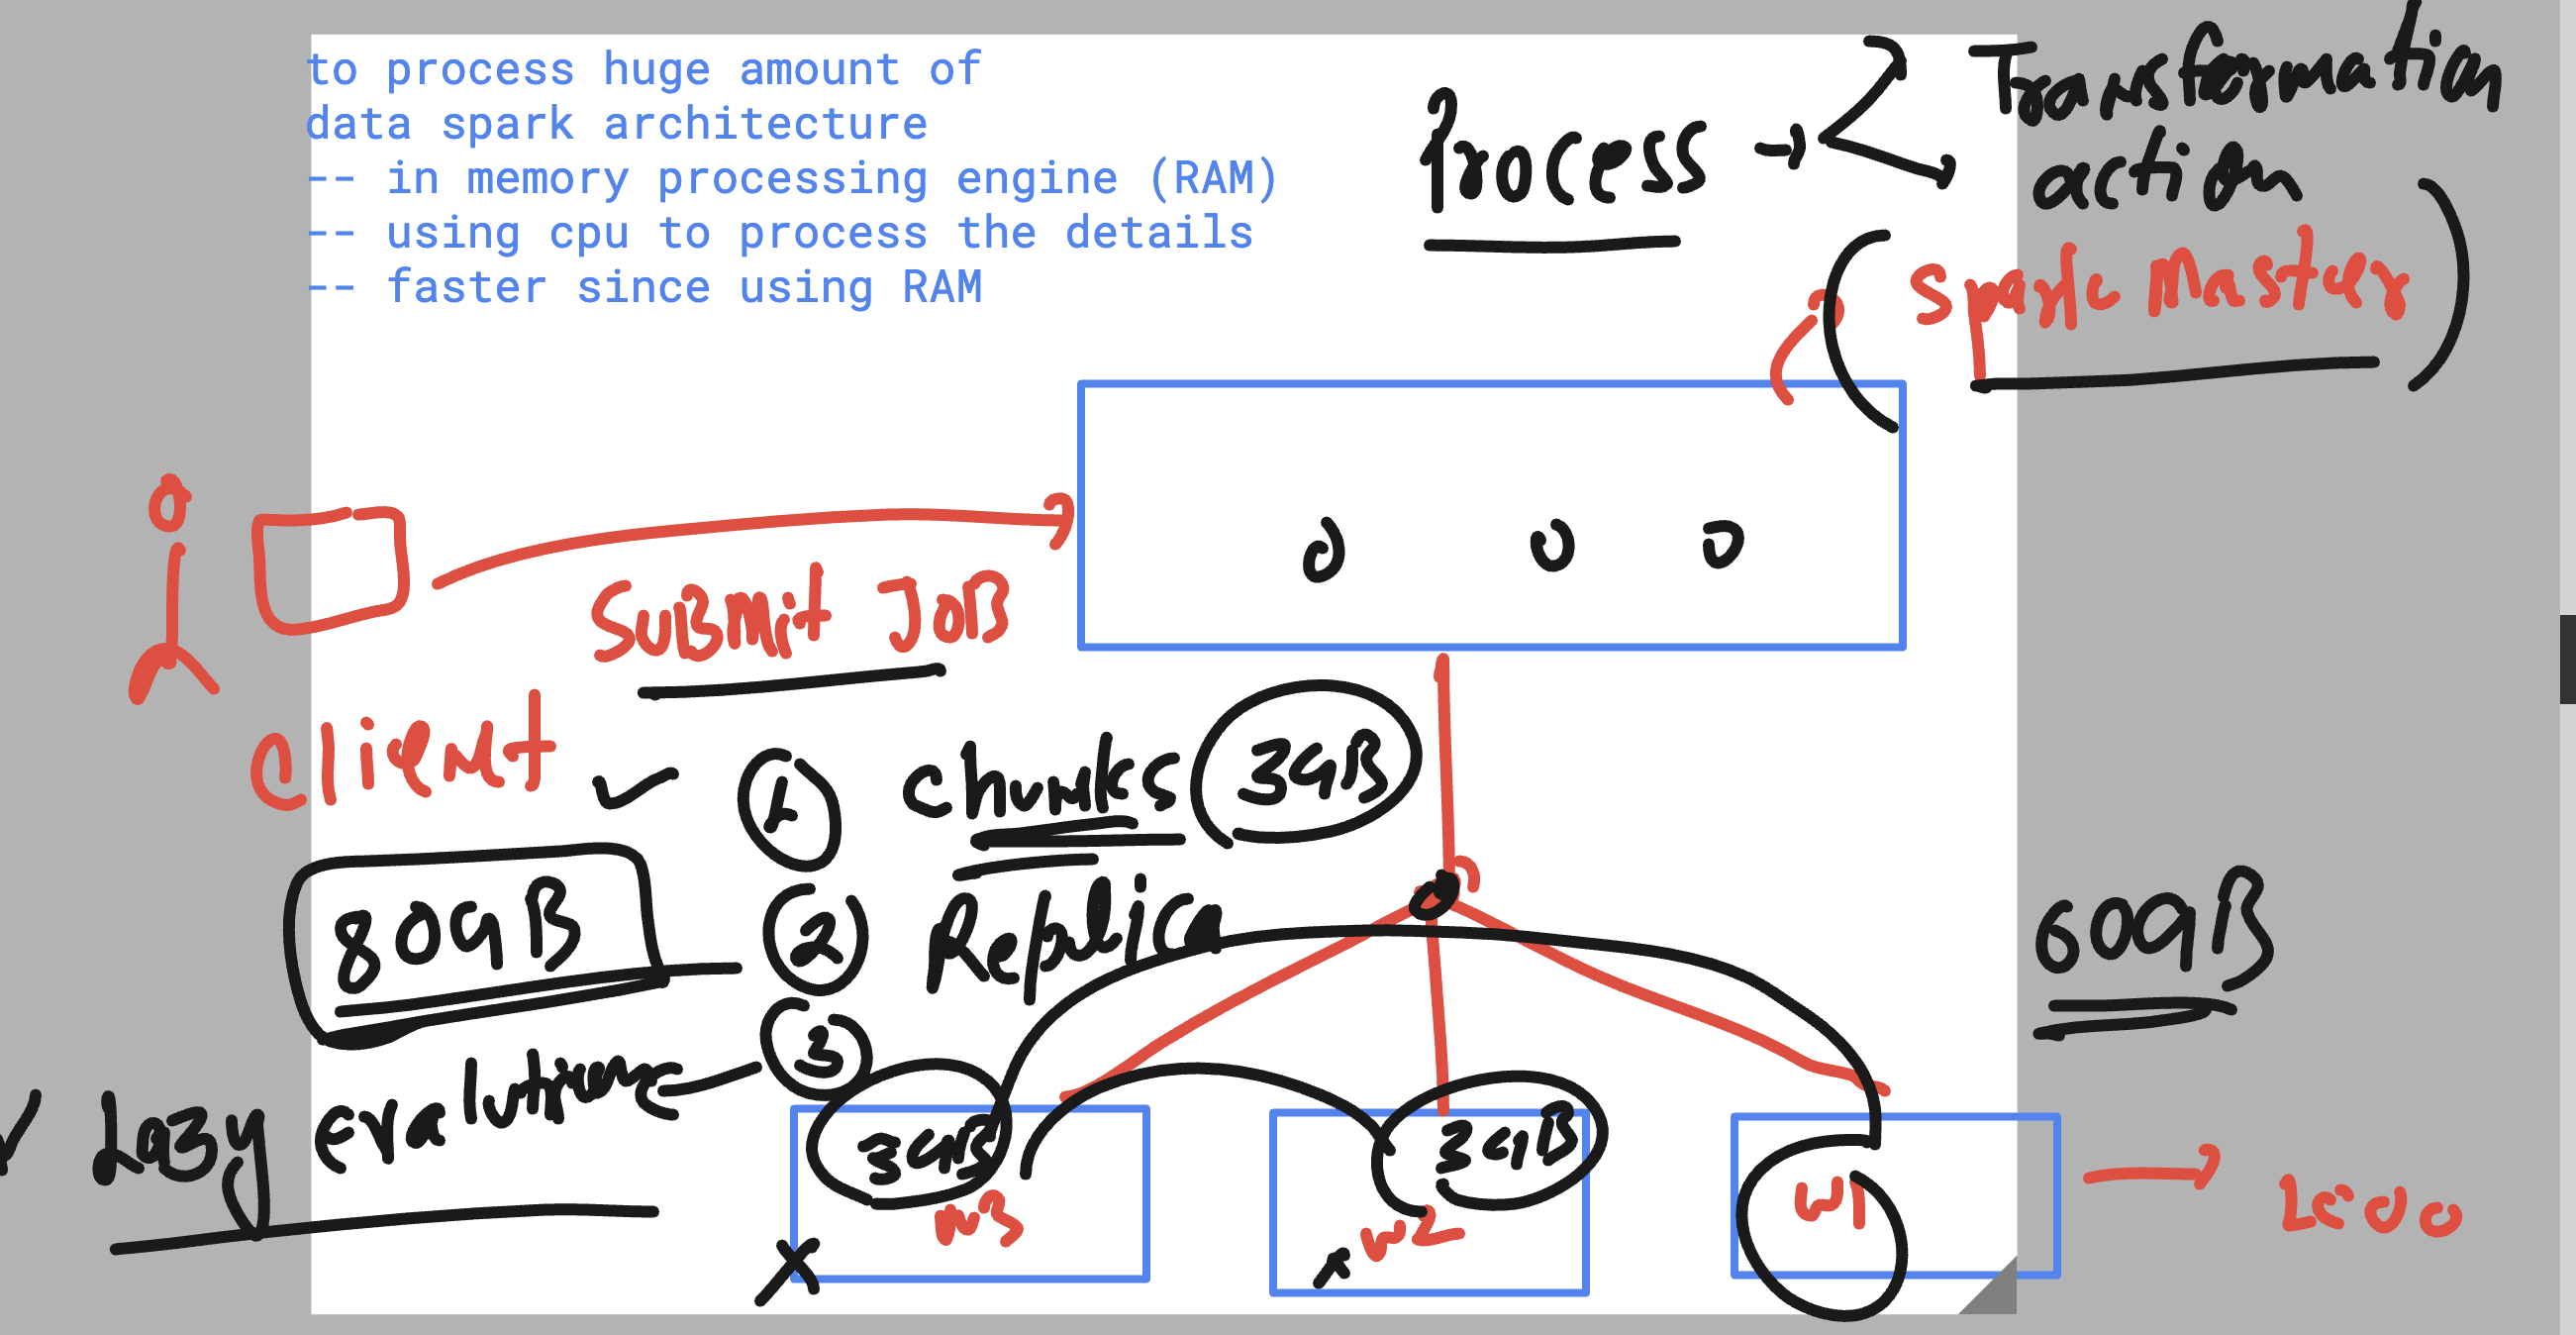 to process huge amount of
data spark architecture
-- in memory processing engine (RAM)
-- using cpu to process the details
-- faster since using RAM
Process
Transformation
action
Spark Master
Submit JOB
Client
1 chunks 3GB
80GB
2 Replica
60GB
3
Lazy
3GB
3GB
w3
w2
w1